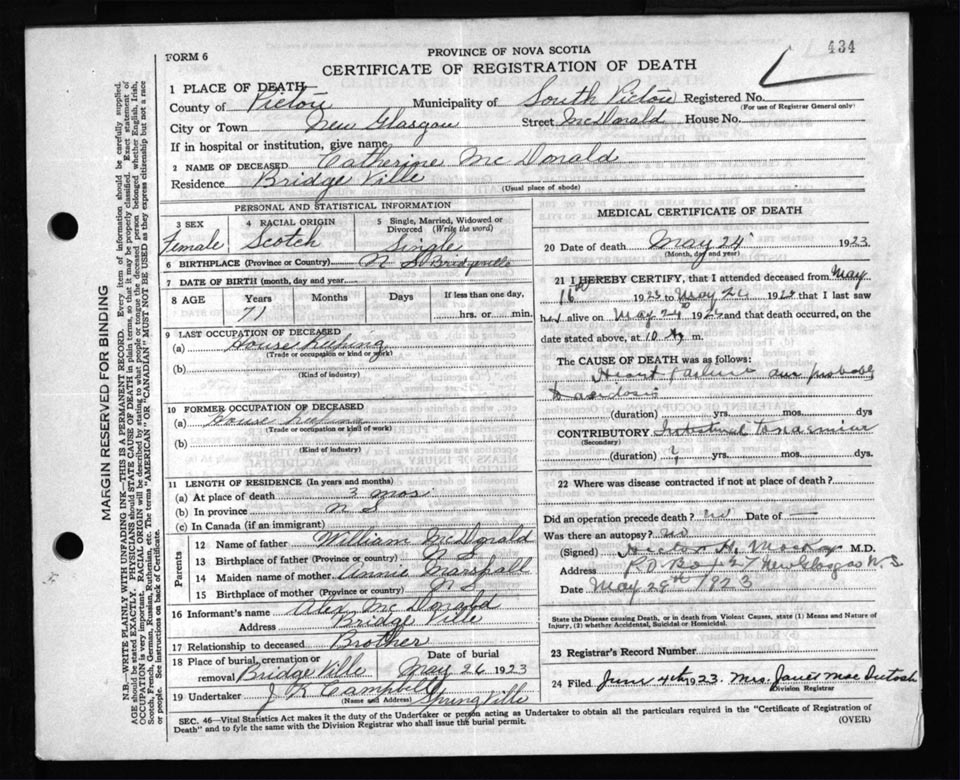 434
FORM 6
PROVINCE OF NOVA SCOTIA
CERTIFICATE OF REGISTRATION OF DEATH
1 PLACE OF DEATH
County of Pictou Municipality of South Pictou Registered No.
(For use of Registrar General only)
City or Town New Glasgow Street McDonald House No.
If in hospital or institution, give name
2 NAME OF DECEASED Catherine McDonald
Residence Bridge Ville
(Usual place of abode)
PERSONAL AND STATISTICAL INFORMATION
3 SEX Female
4 RACIAL ORIGIN Scotch
5 Single, Married, Widowed or Divorced (Write the word) Single
6 BIRTHPLACE (Province or Country) N S Bridgeville
7 DATE OF BIRTH (month, day and year)
8 AGE Years Months Days If less than one day,
71 hrs. or min.
9 LAST OCCUPATION OF DECEASED
(a) House Keeping
(Trade or occupation or kind of work)
(b)
(Kind of industry)
10 FORMER OCCUPATION OF DECEASED
(a) House Keeping
(Trade or occupation or kind of work)
(b)
(Kind of industry)
11 LENGTH OF RESIDENCE (In years and months)
(a) At place of death 3 mos
(b) In province N S
(c) In Canada (if an immigrant)
Parents
12 Name of father William McDonald
13 Birthplace of father (Province or country) N S
14 Maiden name of mother Annie Marshall
15 Birthplace of mother (Province or country) N S
16 Informant's name Alex McDonald
Address Bridge Ville
17 Relationship to deceased Brother
18 Place of burial, cremation or removal Bridge Ville Date of burial May 26 1923
19 Undertaker J R Campbell Spring Ville
(Name and Address)
MEDICAL CERTIFICATE OF DEATH
20 Date of death May 24 1923
(Month, day and year)
21 I HEREBY CERTIFY, that I attended deceased from May
16th 1923 to May 24 1923 that I last saw
her alive on May 24th 1923 and that death occurred, on
date stated above, at 10 m.
The CAUSE OF DEATH was as follows:
Heart failure due probably
to acidosis
(duration) yrs. mos. dys
CONTRIBUTORY Intestinal
(Secondary)
(duration) ? yrs. mos. dys.
22 Where was disease contracted if not at place of death?
Did an operation precede death? no Date of —
Was there an autopsy? no
(Signed) Hector H. Mackay M.D.
Address New Glasgow N.S
Date May 28th 1923
State the Disease causing Death, or in death from Violent Causes, state (1) Means and Nature of
Injury, (2) whether Accidental, Suicidal or Homicidal.
23 Registrar's Record Number
24 Filed June 4th 1923. Mrs. Janet MacIntosh
Division Registrar
SEC. 46—Vital Statistics Act makes it the duty of the Undertaker or person acting as Undertaker to obtain all the particulars required in the "Certificate of Registration of
Death" and to fyle the same with the Division Registrar who shall issue the burial permit.
(OVER)
MARGIN RESERVED FOR BINDING
N.B.—WRITE PLAINLY WITH UNFADING INK—THIS IS A PERMANENT RECORD. Every item of information should be carefully supplied.
AGE should be stated EXACTLY. PHYSICIANS should STATE CAUSE OF DEATH in plain terms, so that it may be properly classified. Exact statement of
OCCUPATION is very important. RACIAL ORIGIN will be described by stating to what people or tongue the deceased person belonged whether English, Irish,
Scotch, French, German, Russian, Ruthenian, etc. The terms "AMERICAN" OR "CANADIAN" MUST NOT BE USED as they express citizenship but not a race
or people. See instructions on back of Certificate.